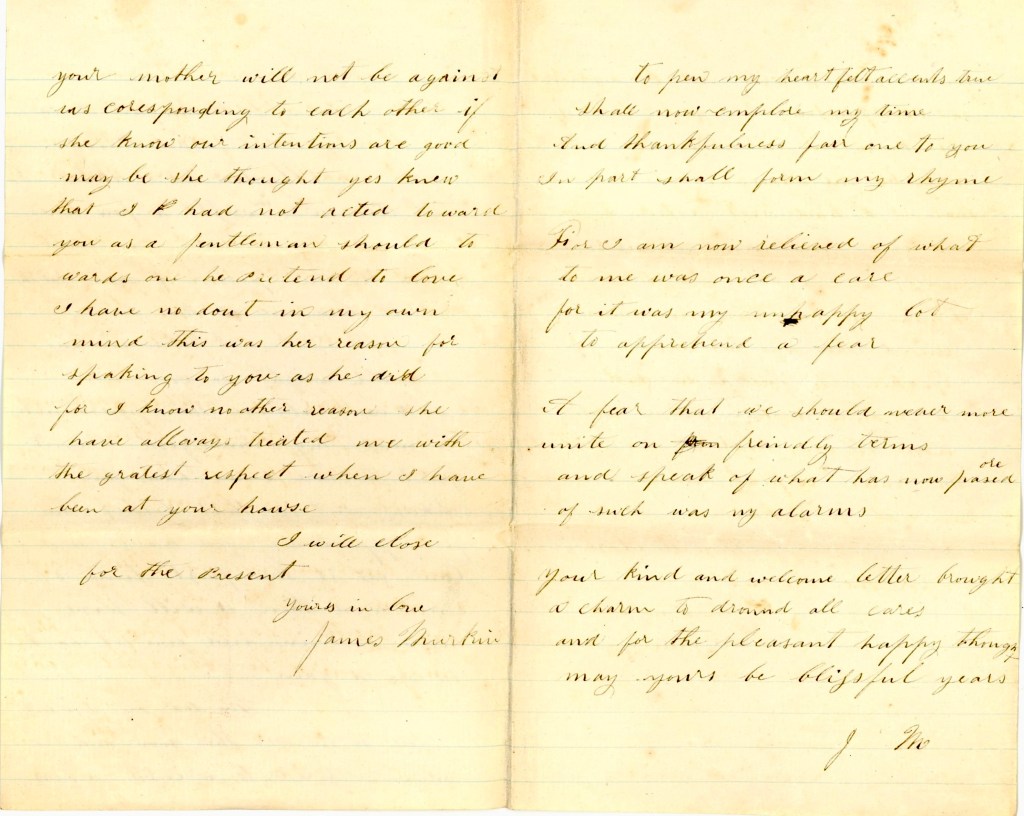 your mother will not be against
us coresponding to each other if
she know our intentions are good
may be she thought yes knew
that I had not acted toward
you as a gentleman should to
wards one he Pretend to love
I have no dout in my own
mind this was her reason for
spaking to you as he did
for I know no other reason she
have allways treated me with
the gratest respect when I have
been at your howse
I will close
for the Present
Yours in love
James
to pen my heart felt accents true
shall now emplore my time
And thankfulness farr one to you
In part shall form my rhyme
For I am now relieved of what
to me was once a care
for it was my unhappy lot
to apprehend a fear
A fear that we should never more
unite on freindly terms
and speak of what has now pased ore
of such was my alarms
Your kind and welcome letter brought
a charm to dround all cares
and for the pleasant happy
may yours be blissful years
J. M